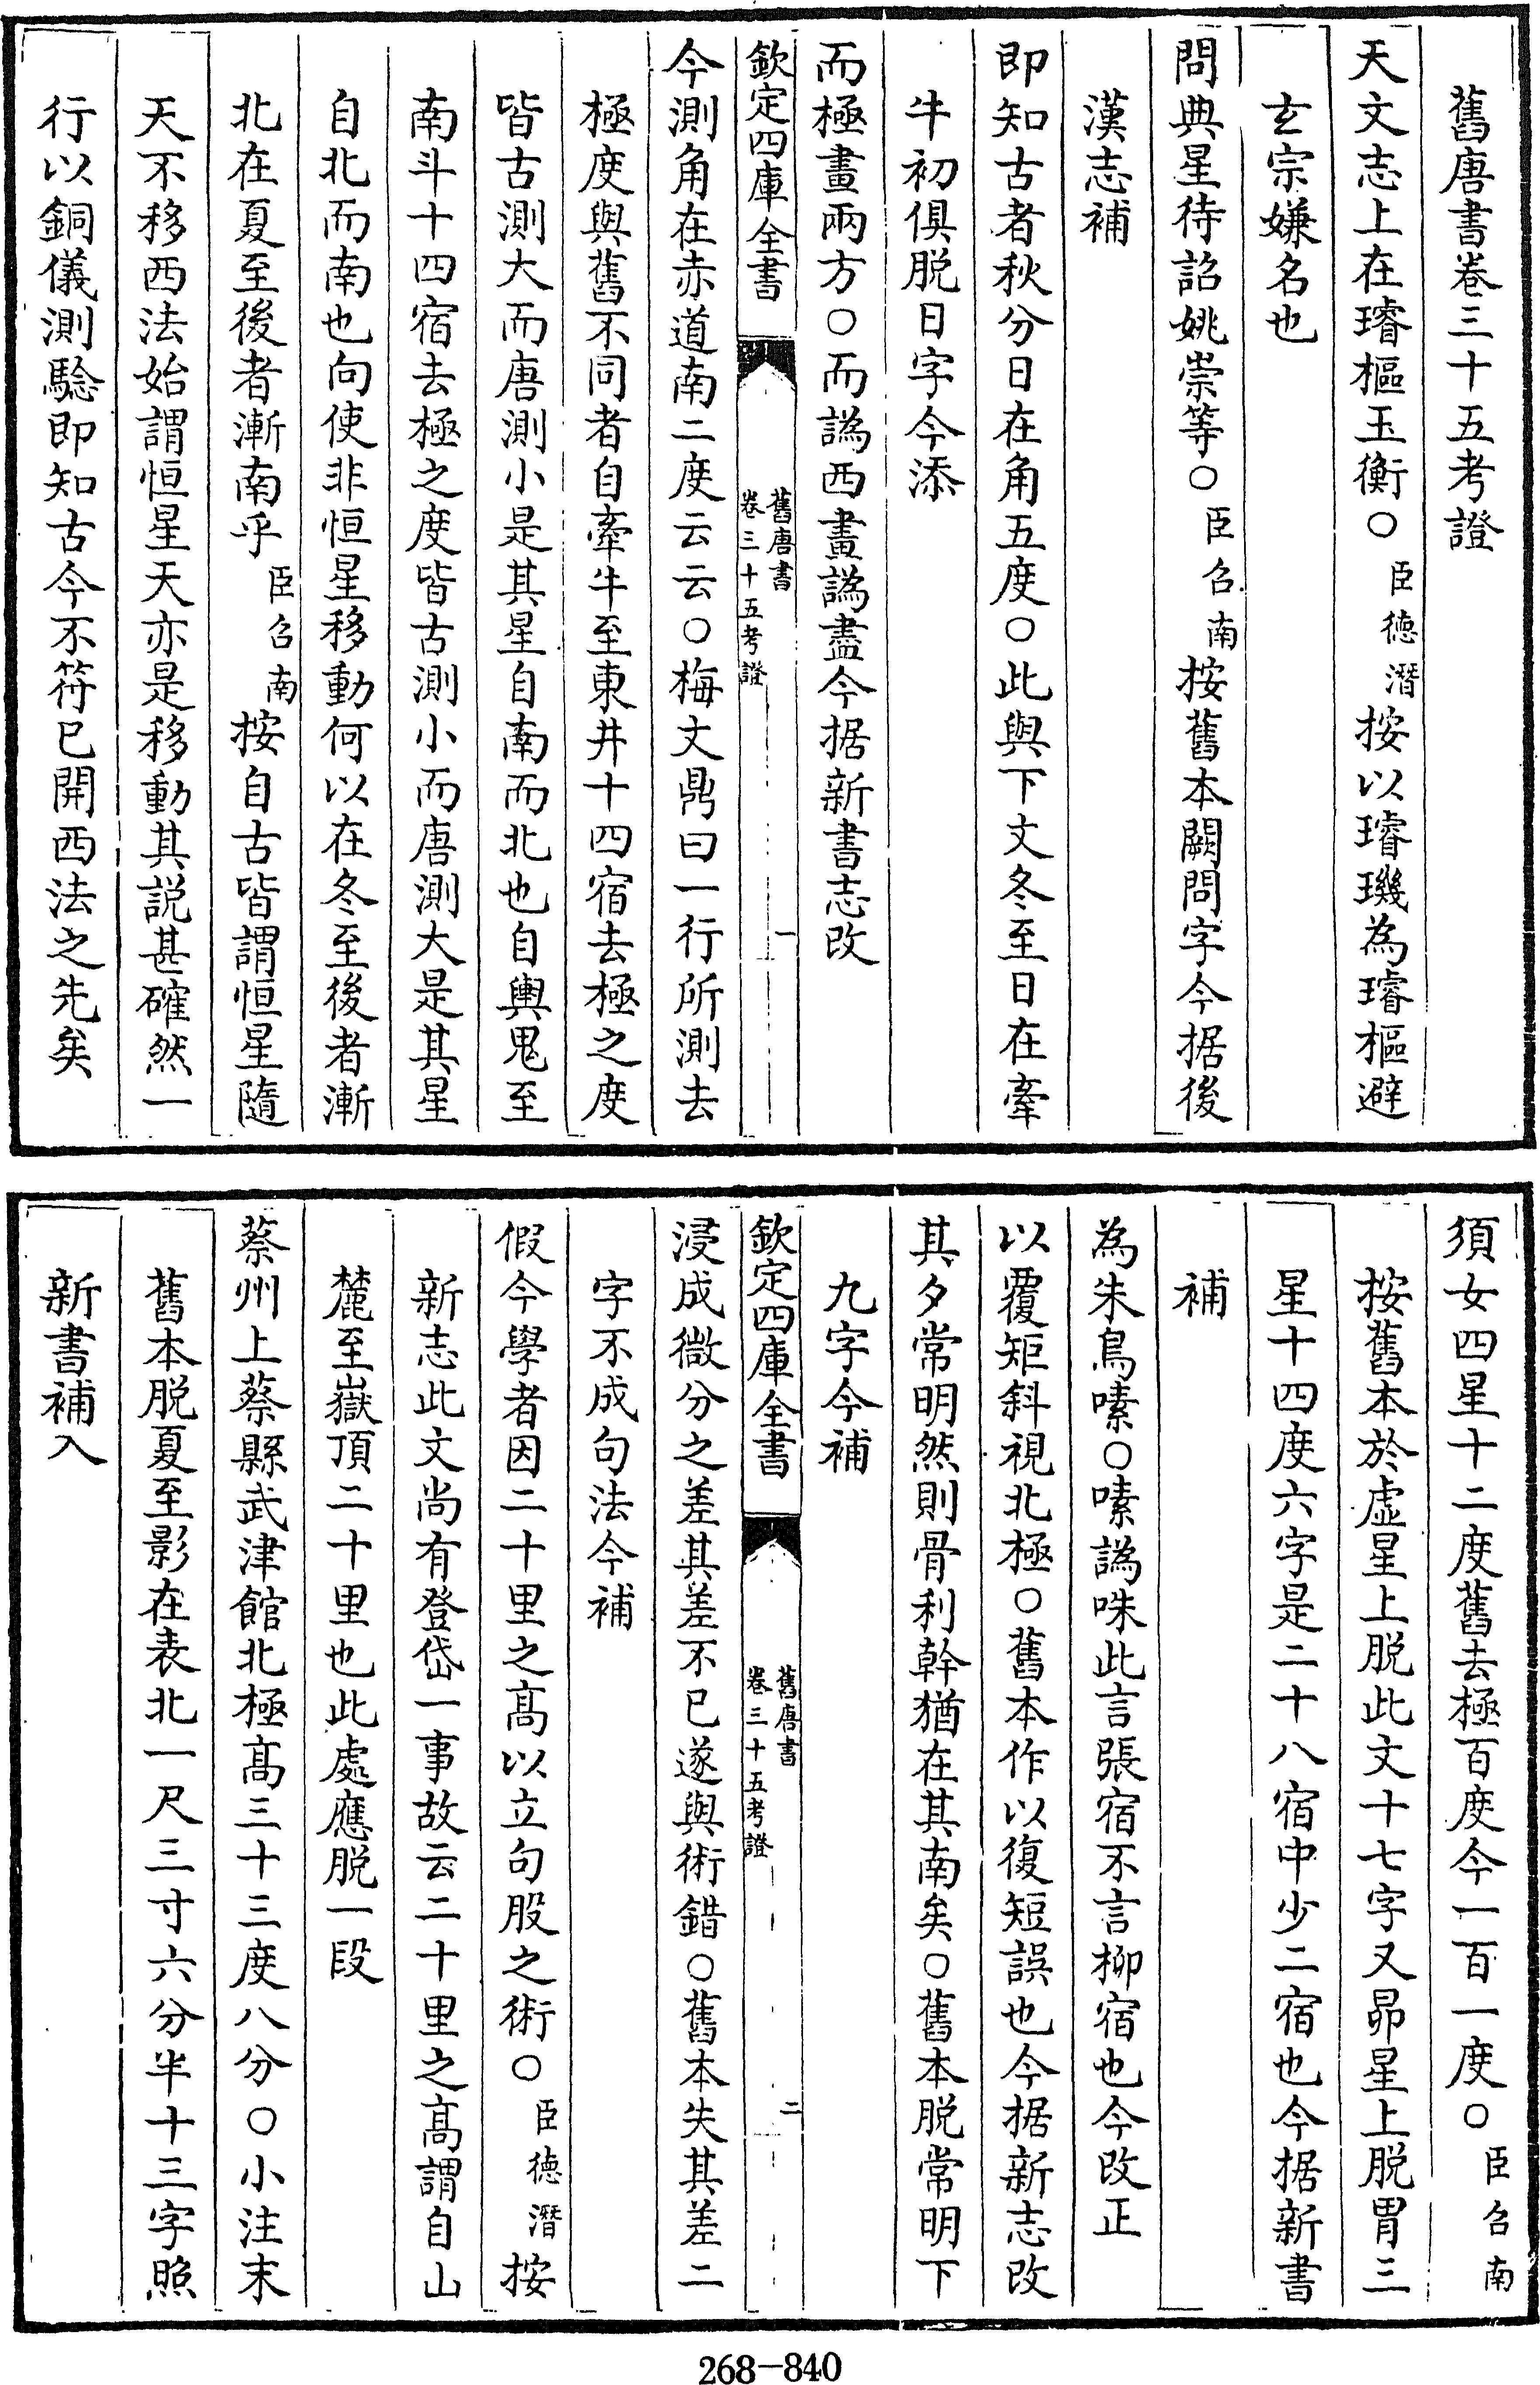 舊唐書卷三十五考證
天文志上在璿樞玉衡○臣德潛按以璿璣為璿樞避
玄宗嫌名也
問典星待詔姚崇等○臣召南按舊本闕問字今据後
漢志補
即知古者秋分日在角五度○此與下文冬至日在牽
牛初俱脱日字今添
而極畫兩方○而譌西畫譌盡今据新書志改
欽定四庫全書
舊唐書
卷三十五考證
一
今測角在赤道南二度云云○梅文鼎曰一行所測去
極度與舊不同者自牽牛至東井十四宿去極之度
皆古測大而唐測小是其星自南而北也自輿鬼至
南斗十四宿去極之度皆古測小而唐測大是其星
自北而南也向使非恒星移動何以在冬至後者漸
北在夏至後者漸南乎臣召南按自古皆謂恒星隨
天不移西法始謂恒星天亦是移動其説甚確然一
行以銅儀測騐即知古今不符已開西法之先矣
須女四星十二度舊去極百度今一百一度○臣召南
按舊本於虚星上脱此文十七字又昴星上脱胃三
星十四度六字是二十八宿中少二宿也今据新書
補
為朱鳥嗉○嗉譌咮此言張宿不言柳宿也今改正
以覆矩斜視北極○舊本作以復短誤也今据新志改
其夕常明然則骨利幹猶在其南矣○舊本脱常明下
九字今補
欽定四庫全書
舊唐書
卷三十五考證
二
浸成微分之差其差不已遂與術錯○舊本失其差二
字不成句法今補
假今學者因二十里之髙以立句股之術○臣德潛按
新志此文尚有登岱一事故云二十里之髙謂自山
麓至嶽頂二十里也此處應脱一段
蔡州上蔡縣武津館北極髙三十三度八分○小注末
舊本脱夏至影在表北一尺三寸六分半十三字照
新書補入
268-840